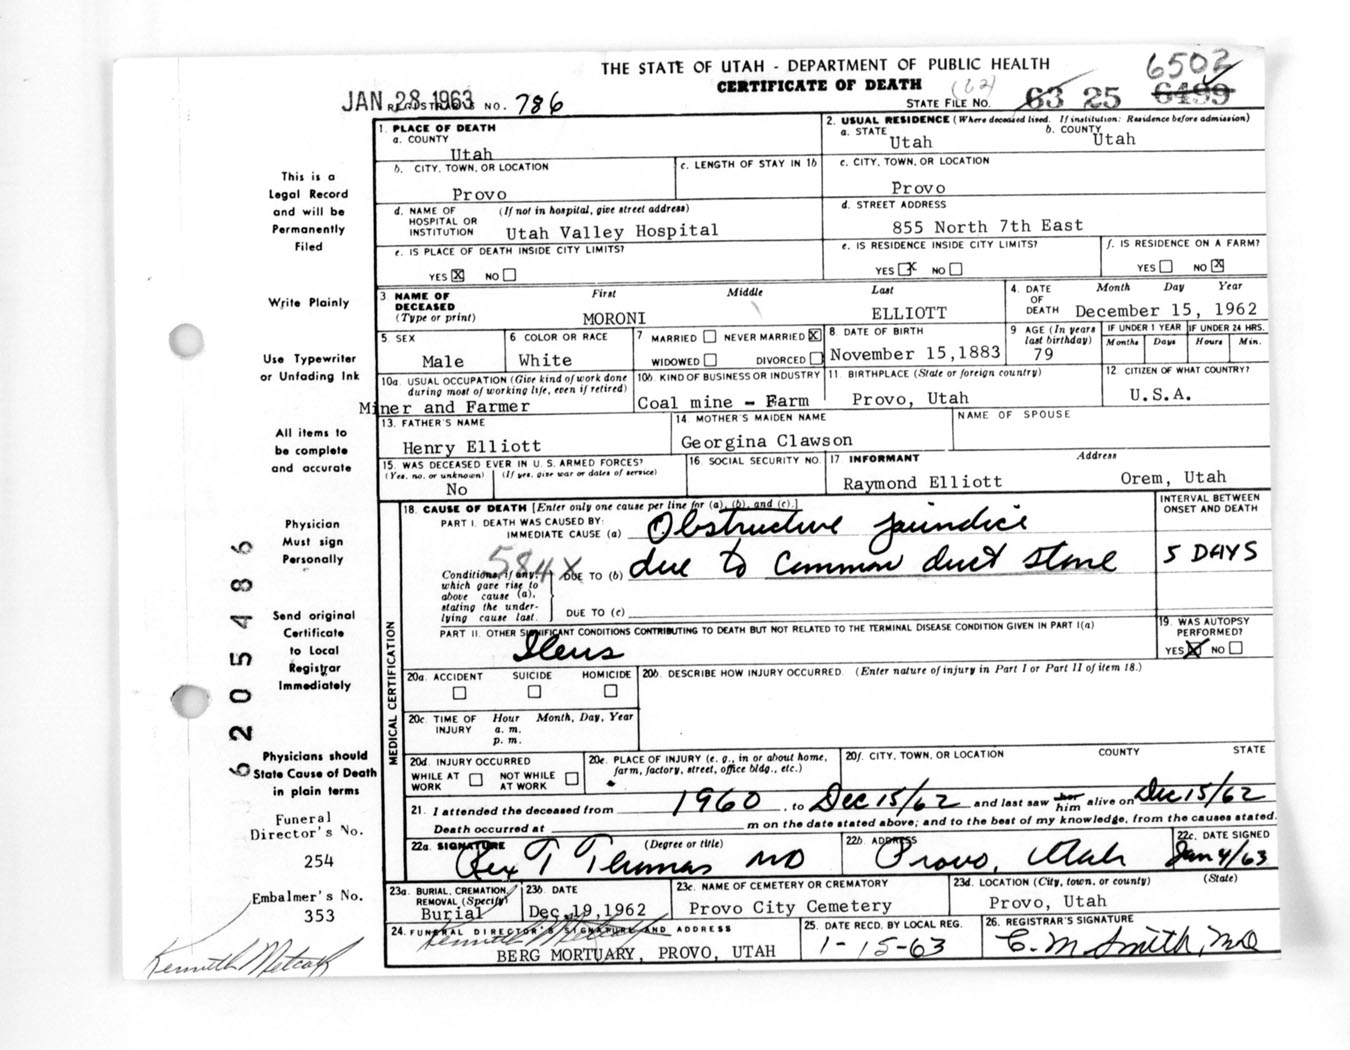 THE STATE OF UTAH - DEPARTMENT OF PUBLIC HEALTH
CERTIFICATE OF DEATH
(62)
6502
JAN 28 1963 REGISTRAR'S NO. 786
STATE FILE NO. 63 25 6499
1. PLACE OF DEATH
a. COUNTY
Utah
2. USUAL RESIDENCE (Where deceased lived. If institution: Residence before admission)
a. STATE Utah
b. COUNTY Utah
b. CITY, TOWN, OR LOCATION
Provo
c. LENGTH OF STAY IN 1b
c. CITY, TOWN, OR LOCATION
Provo
d. NAME OF HOSPITAL OR INSTITUTION (If not in hospital, give street address)
Utah Valley Hospital
d. STREET ADDRESS
855 North 7th East
e. IS PLACE OF DEATH INSIDE CITY LIMITS?
YES X NO
e. IS RESIDENCE INSIDE CITY LIMITS?
YES X NO
f. IS RESIDENCE ON A FARM?
YES NO X
3. NAME OF DECEASED (Type or print)
First Middle Last
MORONI ELLIOTT
4. DATE OF DEATH Month Day Year
December 15, 1962
5. SEX
Male
6 COLOR OR RACE
White
7 MARRIED NEVER MARRIED X
WIDOWED DIVORCED
8. DATE OF BIRTH
November 15,1883
9 AGE (In years last birthday)
79
IF UNDER 1 YEAR
Months Days
IF UNDER 24 HRS.
Hours Min.
10a. USUAL OCCUPATION (Give kind of work done during most of working life, even if retired)
Miner and Farmer
10b. KIND OF BUSINESS OR INDUSTRY
Coal mine - Farm
11. BIRTHPLACE (State or foreign country)
Provo, Utah
12. CITIZEN OF WHAT COUNTRY?
U.S.A.
13. FATHER'S NAME
Henry Elliott
14 MOTHER'S MAIDEN NAME
Georgina Clawson
NAME OF SPOUSE
15. WAS DECEASED EVER IN U.S. ARMED FORCES?
(Yes, no, or unknown) (If yes, give war or dates of service)
No
16. SOCIAL SECURITY NO.
17 INFORMANT Address
Raymond Elliott Orem, Utah
18. CAUSE OF DEATH [Enter only one cause per line for (a), (b), and (c).]
INTERVAL BETWEEN ONSET AND DEATH
PART I. DEATH WAS CAUSED BY:
IMMEDIATE CAUSE (a) Obstructive jaundice
584X
Conditions, if any, which gave rise to above cause (a), stating the underlying cause last.
DUE TO (b) due to common duct stone
5 DAYS
DUE TO (c)
PART II. OTHER SIGNIFICANT CONDITIONS CONTRIBUTING TO DEATH BUT NOT RELATED TO THE TERMINAL DISEASE CONDITION GIVEN IN PART I(a)
Ileus
19. WAS AUTOPSY PERFORMED?
YES X NO
MEDICAL CERTIFICATION
20a. ACCIDENT SUICIDE HOMICIDE
20b. DESCRIBE HOW INJURY OCCURRED. (Enter nature of injury in Part I or Part II of item 18.)
20c. TIME OF INJURY Hour Month, Day, Year
a. m.
p. m.
20d. INJURY OCCURRED
WHILE AT WORK NOT WHILE AT WORK
20e. PLACE OF INJURY (e. g., in or about home, farm, factory, street, office bldg., etc.)
20f. CITY, TOWN, OR LOCATION COUNTY STATE
21. I attended the deceased from 1960, to Dec 15/62 and last saw her him alive on Dec 15/62
Death occurred at m on the date stated above; and to the best of my knowledge, from the causes stated.
22a. SIGNATURE (Degree or title)
Rex T Thomas MD
22b. ADDRESS
Provo, Utah
22c. DATE SIGNED
Jan 4/63
23a. BURIAL, CREMATION, REMOVAL (Specify)
Burial
23b. DATE
Dec.19,1962
23c. NAME OF CEMETERY OR CREMATORY
Provo City Cemetery
23d. LOCATION (City, town, or county) (State)
Provo, Utah
24. FUNERAL DIRECTOR'S SIGNATURE AND ADDRESS
Kenneth Metcalf
BERG MORTUARY, PROVO, UTAH
25. DATE RECD. BY LOCAL REG.
1-15-63
26. REGISTRAR'S SIGNATURE
C. M Smith, MD
This is a
Legal Record
and will be
Permanently
Filed
Write Plainly
Use Typewriter
or Unfading Ink
All items to
be complete
and accurate
Physician
Must sign
Personally
Send original
Certificate
to Local
Registrar
Immediately
Physicians should
State Cause of Death
in plain terms
Funeral
Director's No.
254
Embalmer's No.
353
Kenneth Metcalf
6205486